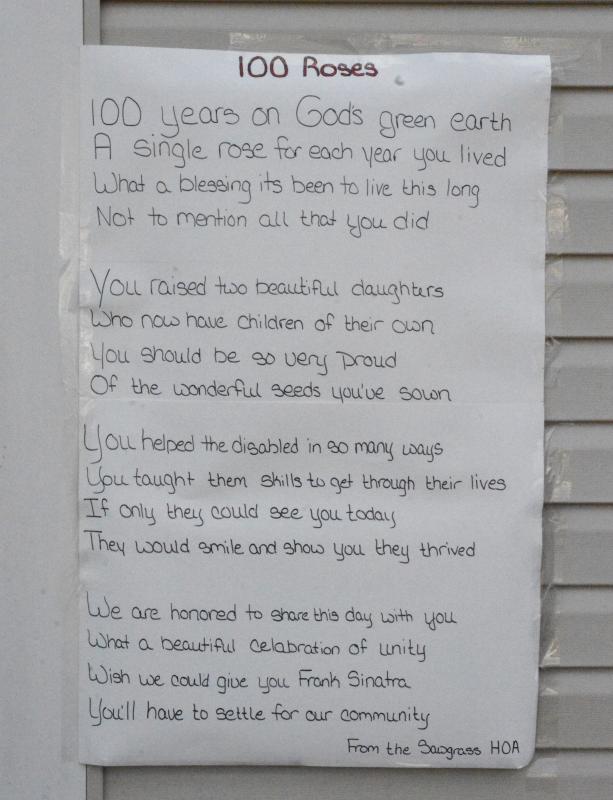 100 Roses
100 years on God's green earth
A single rose for each year you lived
What a blessing its been to live this long
Not to mention all that you did
You raised two beautiful daughters
Who now have children of their own
You should be so very proud
Of the wonderful seeds you've sown
You helped the disabled in so many ways
You taught them skills to get through their lives
If only they could see you today
They would smile and show you they thrived
We are honored to share this day with you
What a beautiful celabration of unity
Wish we could give you Frank Sinatra
You'll have to settle for our community
From the Sawgrass HOA